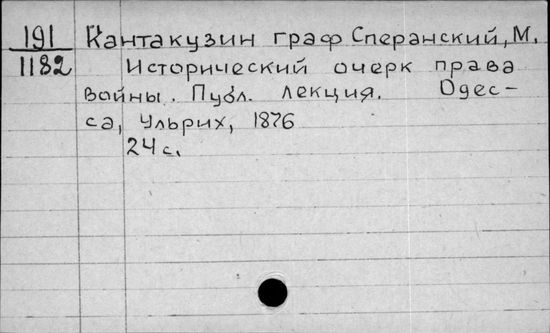 191 Кантакузин граф Сперанский, М.
1182 Исторический очерк права
войны. Публ. лекция. Одес-
са, Ульрих, 1876
24 с.